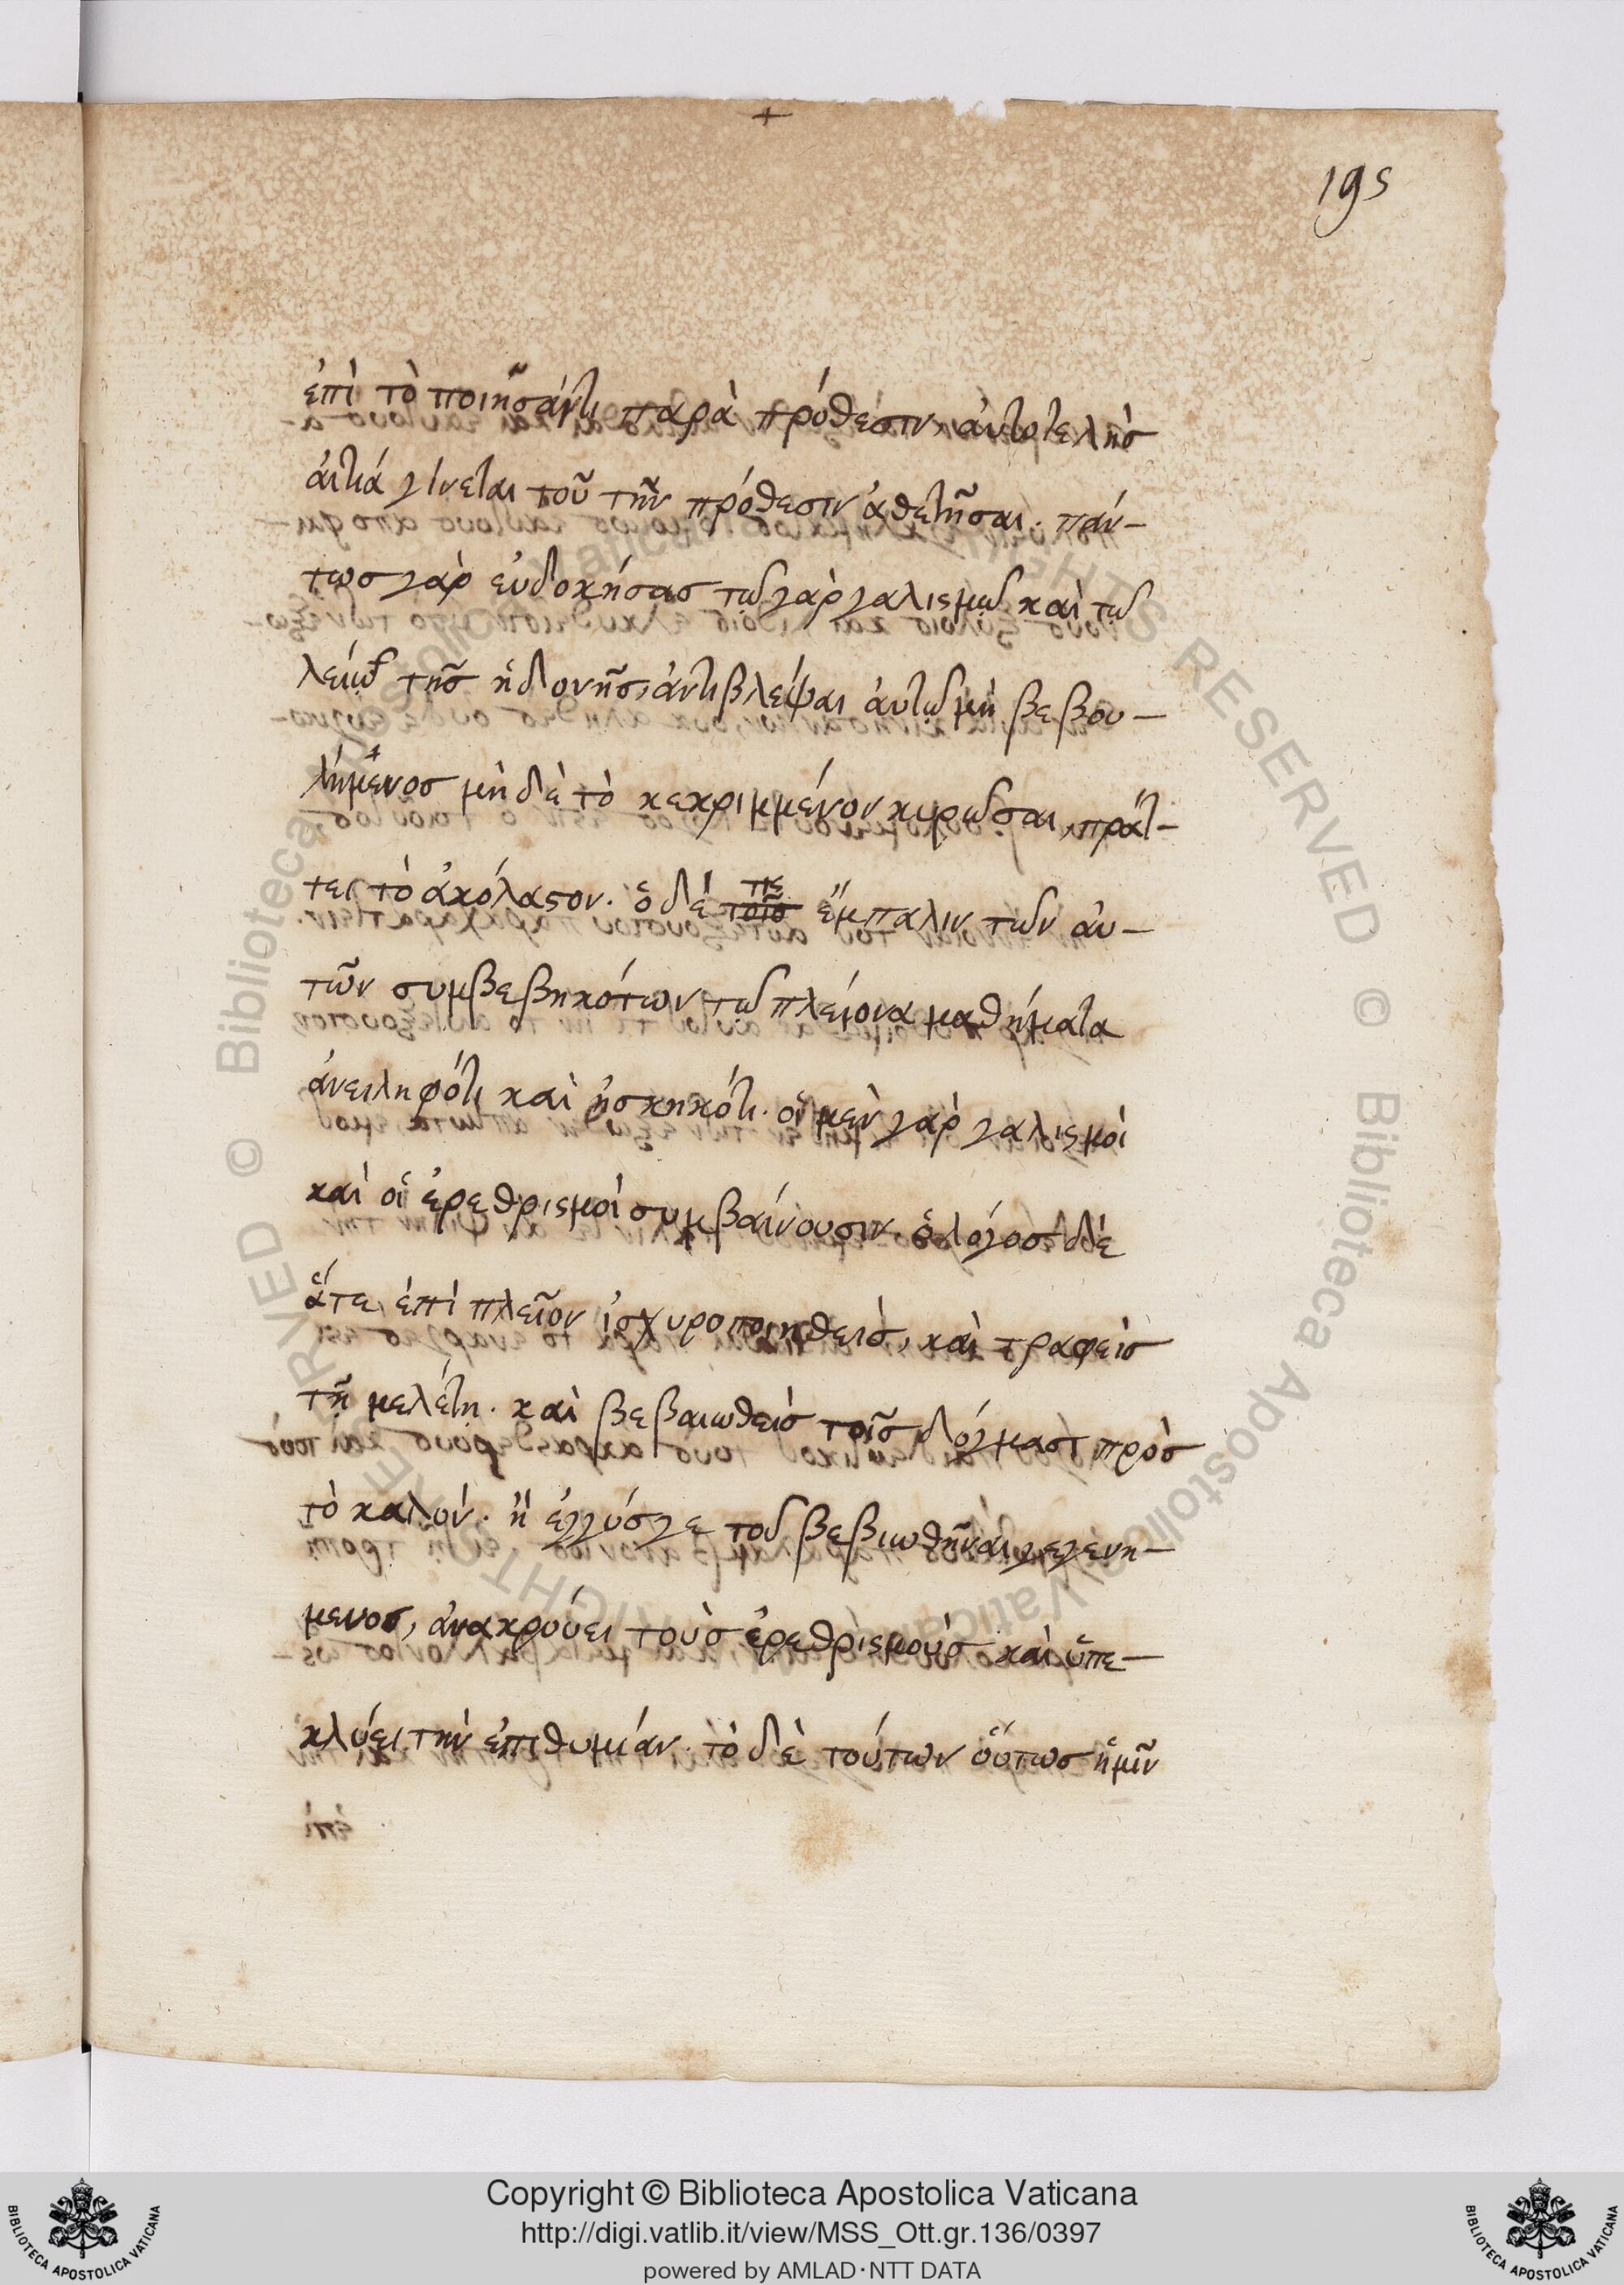 195
ἐπὶ τὸ ποιῆσάντι παρὰ πρόθεσιν, ἀυτοτελὴσ
ἀιτιά γίνεται τοῦ τὴν πρόθεσιν ἀθετῆσαι. πάν-
τωσ γὰρ εὐδοκήσασ τῳ γαργαλισμῳ καὶ τῳ
λείῳ τῆσ ἡδονῆσ, ἀντιβλέψαι ἀυτῳ μὴ βεβου-
λήμενοσ μὴ δὲ τὸ κεκριμμένον κυρωσαι, πράτ-
τει τὸ ἀκόλαστον. ὁ δέ τισ ἔμπαλιν των ἀυ-
τῶν συμβεβηκότων τῳ πλείονα μαθήματα
ἀνειληφότι καὶ ἠσκηκότι. οἱ μὲν γαργαλισμοὶ
καὶ οἱ ἐρεθρισμοὶ συμβαίνουσιν, ὁ λόγοσ δὲ
ἅτε ἐπὶ πλεῖον ἰσχυροποιηθεὶσ, καὶ τραφεὶσ
τῇ μελέτῃ. καὶ βεβαιωθεὶσ τοῖσ δόγμασι πρὸσ
τὸ καλὸν. ἢ ἐγγύσ γε του βεβιωθῆναι γεγενη-
μενοσ, ἀνακρούει τοὺσ ἐρεθρισμοὺσ καὶ ὑπε-
κλύει τὴν ἐπιθυμίαν. τὸ δὲ τούτων οὕτωσ ἡμῖν
Copyright © Biblioteca Apostolica Vaticana
http://digi.vatlib.it/view/MSS_Ott.gr.136/0397
powered by AMLAD·NTT DATA
BIBLIOTECA APOSTOLICA VATICANA
BIBLIOTECA APOSTOLICA VATICANA